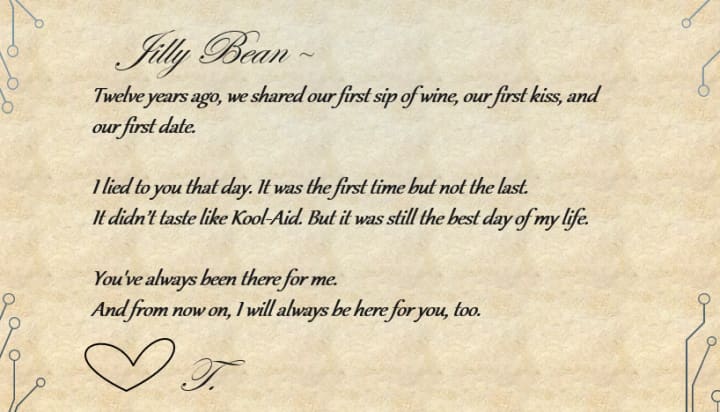 Jilly Bean ~
Twelve years ago, we shared our first sip of wine, our first kiss, and
our first date.
I lied to you that day. It was the first time but not the last.
It didn't taste like Kool-Aid. But it was still the best day of my life.
You've always been there for me.
And from now on, I will always be here for you, too.
T.